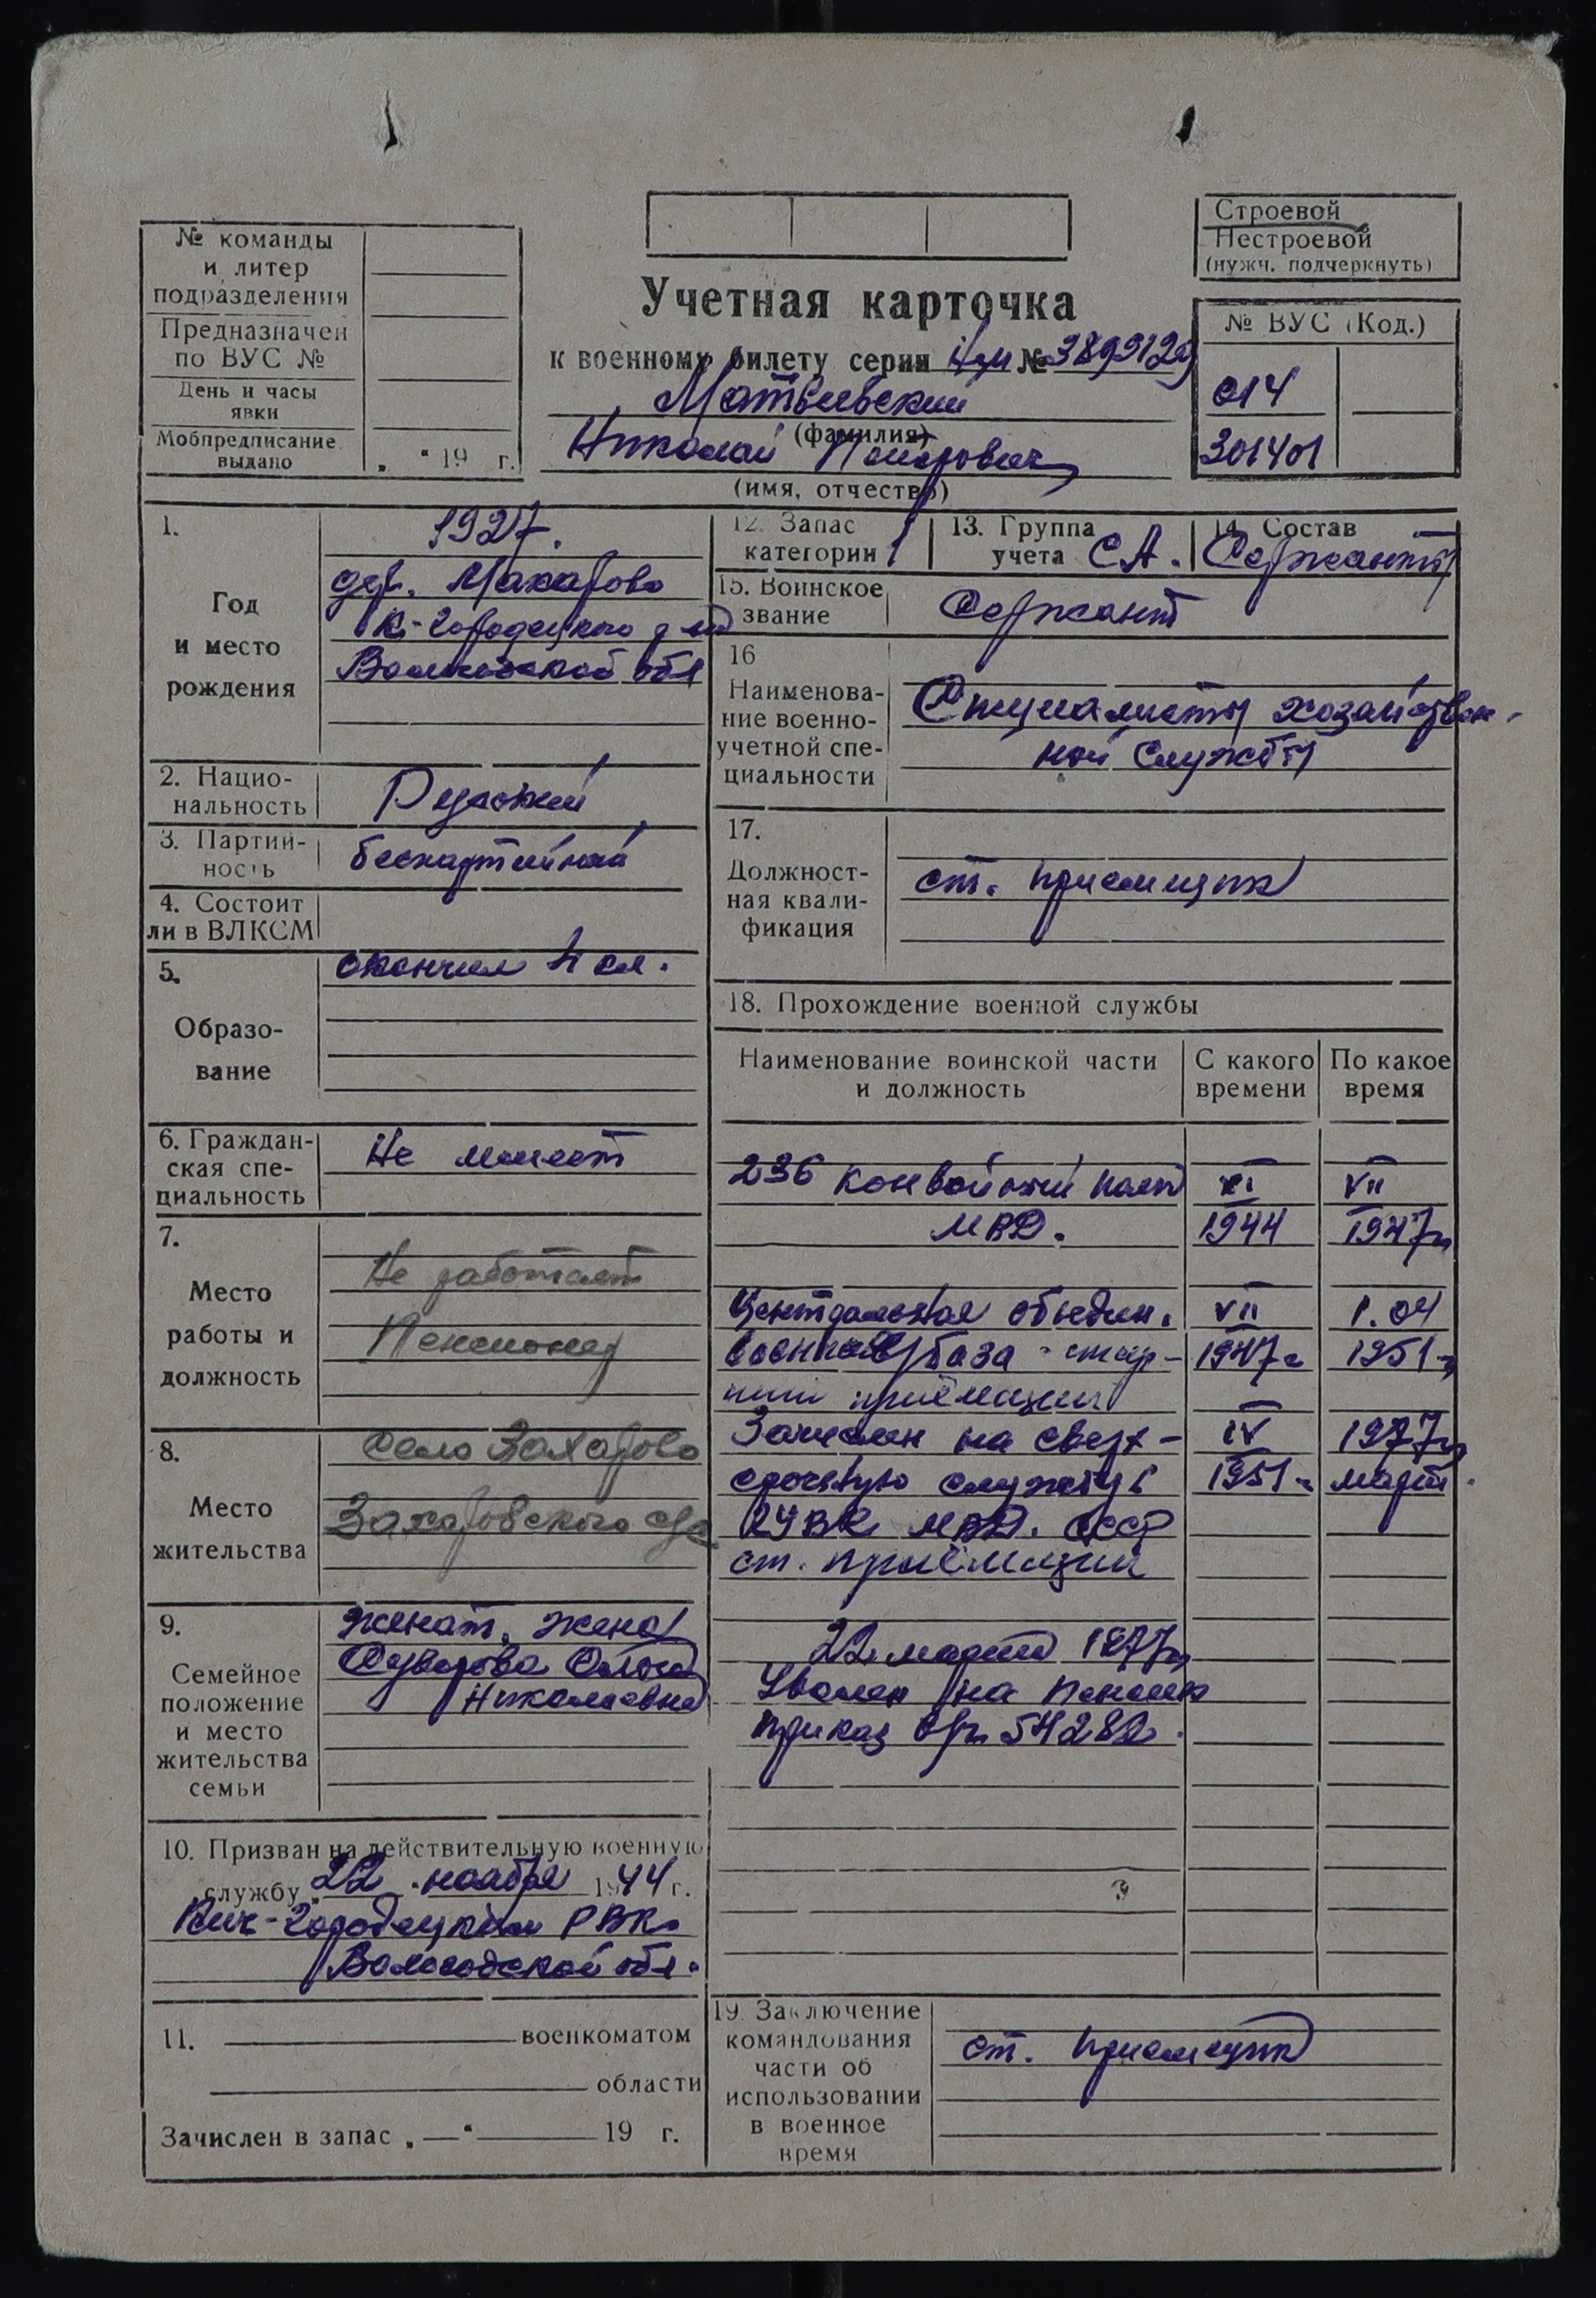 Строевой
Нестроевой
(нужн. подчеркнуть)
№ команды
и литер
подразделения
Предназначен
по ВУС №
День и часы
явки
Мобпредписание
выдано
„ “ 19 г.
Учетная карточка
к военному билету серии № 3899129
Матвеевский
(фамилия)
Николай
(имя, отчество)
№ ВУС (Код.)
014
301401
1.
Год
и место
рождения
1927.
дер. Макарово
К-Городецкого
Вологодской обл
2. Нацио-
нальность
Русский
3. Партий-
ность
беспартийный
4. Состоит
ли в ВЛКСМ
5.
Образо-
вание
окончил 4 кл.
6. Граждан-
ская спе-
циальность
Не имеет
7.
Место
работы и
должность
Не работает
Пенсионер
8.
Место
жительства
село Захарово
Захаровского с/с
9.
Семейное
положение
и место
жительства
семьи
женат, жена
Суворова
Николаевна
10. Призван на действительную военную
службу „22 “ ноября 1944 г.
Кич-Городецким РВК
Вологодской обл.
11. военкоматом
области
Зачислен в запас „—“ 19 г.
12. Запас
категории 1
13. Группа
учета СА.
14. Состав
Сержанты
15. Воинское
звание
Сержант
16
Наименова-
ние военно-
учетной спе-
циальности
Специалисты хозяйствен-
ной службы
17.
Должност-
ная квали-
фикация
ст. приемщик
18. Прохождение военной службы
Наименование воинской части
и должность
С какого
времени
По какое
время
236 конвойный полк XI VII
МВД. 1944 1947г
Центральная объедин. VII 1.04
военная база - стар- 1947г 1951г
ший приёмщик
Зачислен на сверх- IV 1977г
срочную службу в 1951г март.
МВД. СССР
ст. приёмщик
22 марта 1977г
Уволен на пенсию
приказ в/ч 5428
19. Заключение
командования
части об
использовании
в военное
время
ст. приемщик